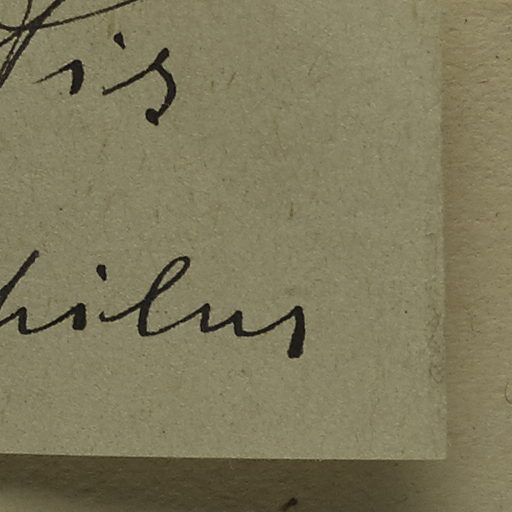 is
hilus